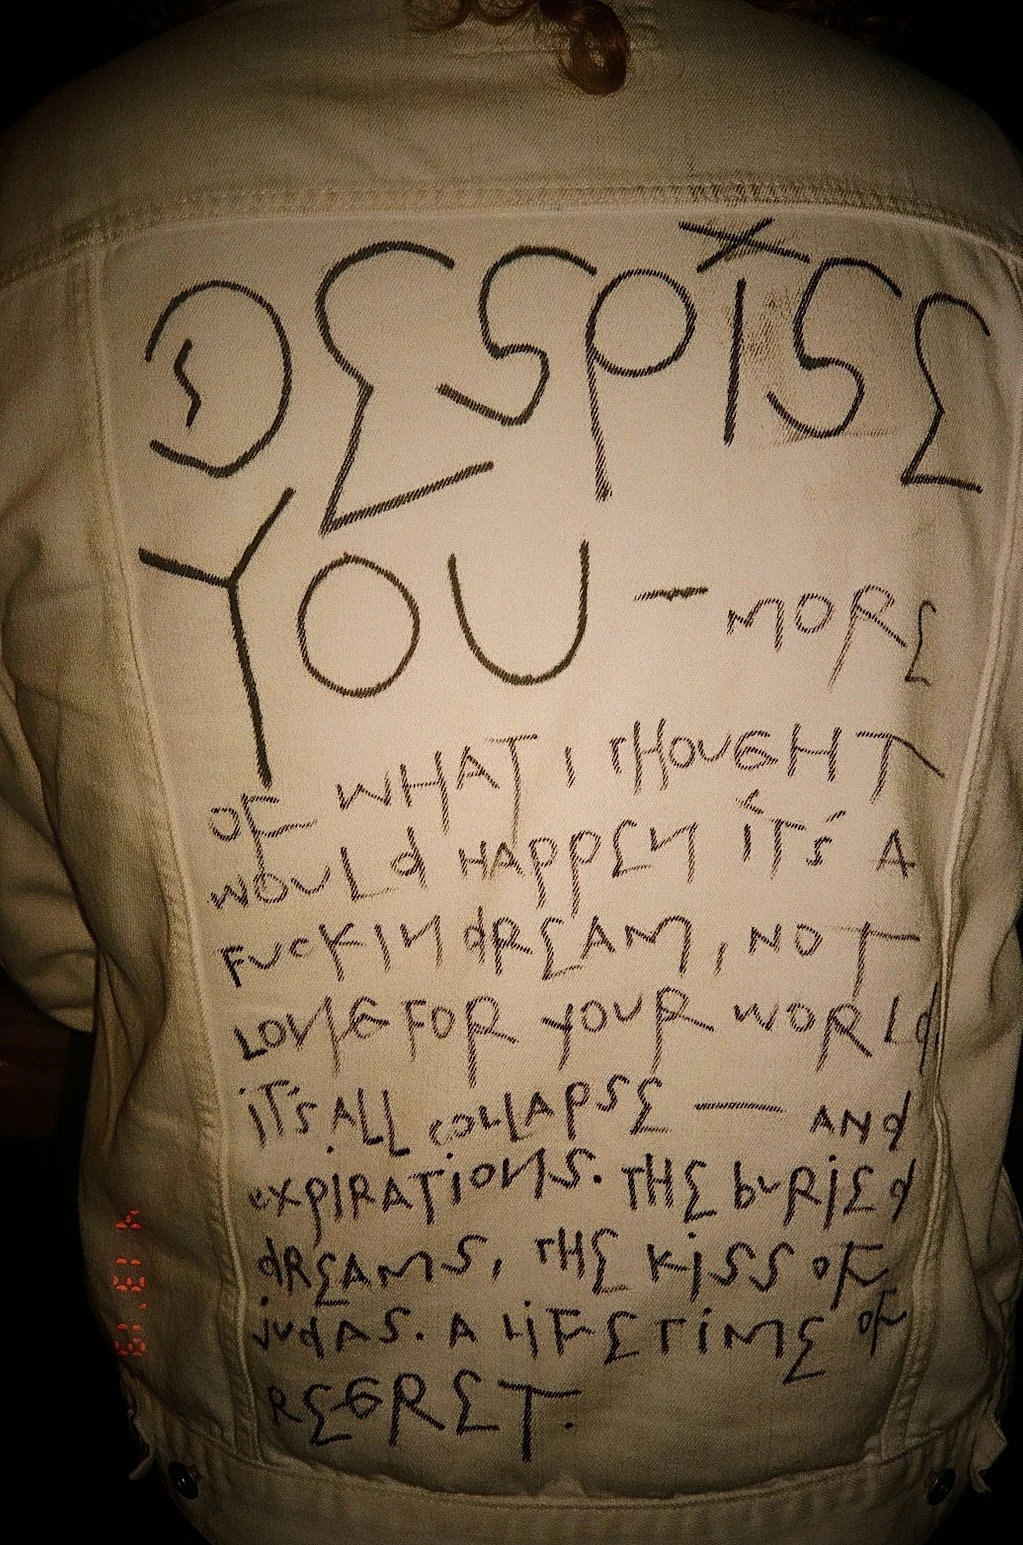 DESPISE
YOU - MORE
OF WHAT I THOUGHT
WOULD HAPPEN IT'S A
FUCKIN DREAM, NOT
LONG FOR YOUR WORLD
IT'S ALL COLLAPSE — AND
EXPIRATIONS. THE BURIED
DREAMS, THE KISS OF
JUDAS. A LIFETIME OF
REGRET.